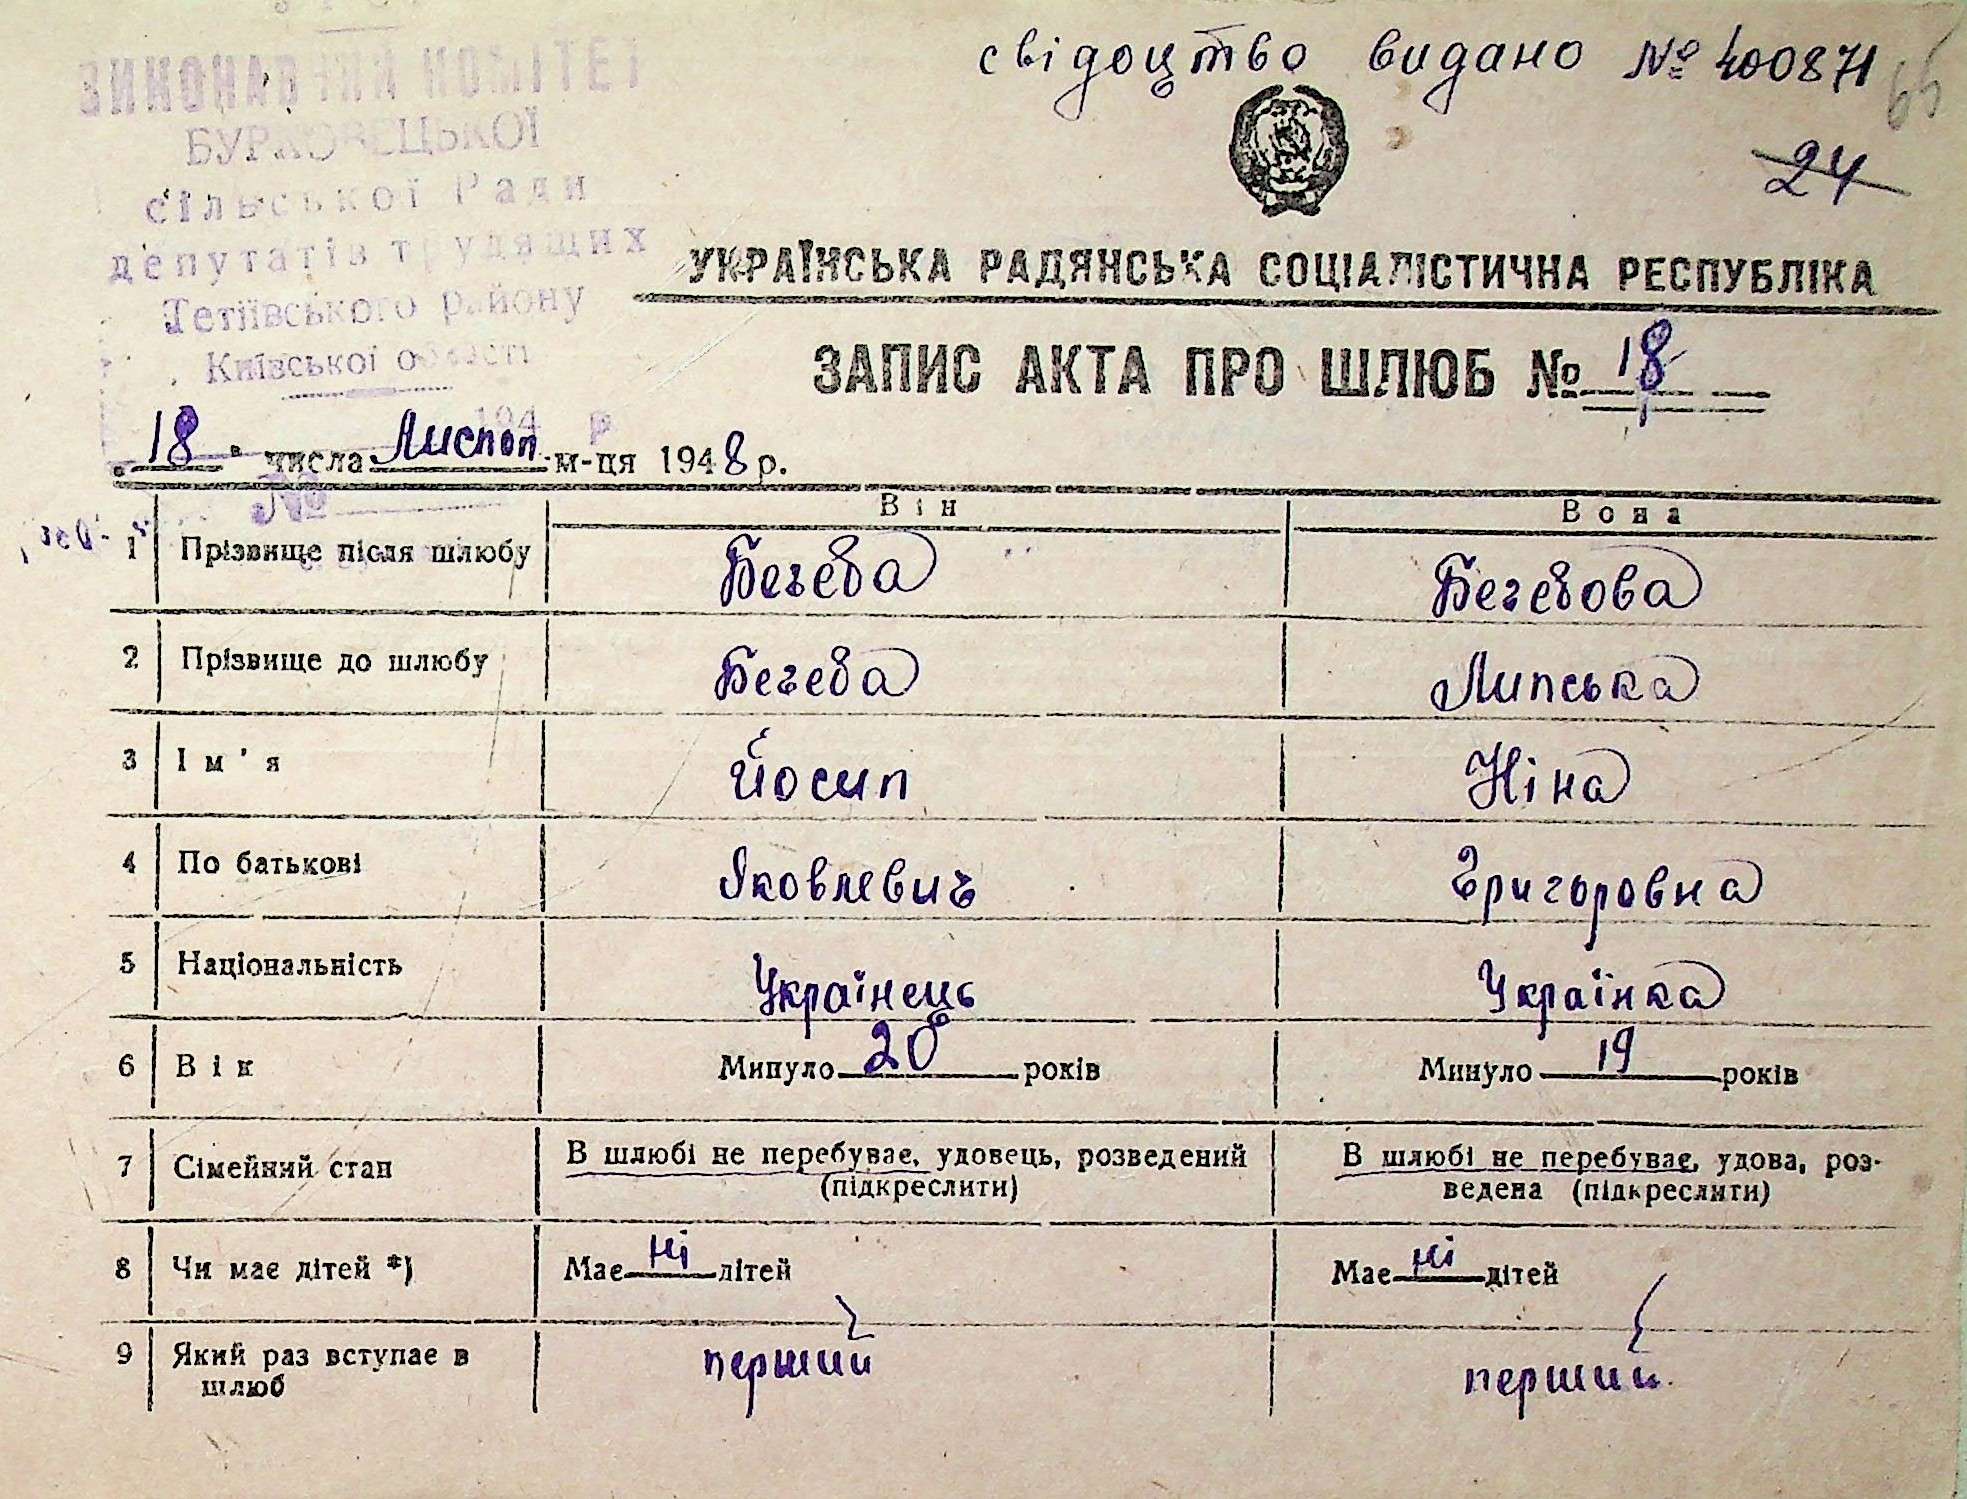 свідоцтво видано № 400871
65
24
ВИКОНАВЧИЙ КОМІТЕТ
БУРКОВЕЦЬКОЇ
сільської Ради
депутатів трудящих
Тетіївського району
Київської області
194 р
№
УКРАЇНСЬКА РАДЯНСЬКА СОЦІАЛІСТИЧНА РЕСПУБЛІКА
ЗАПИС АКТА ПРО ШЛЮБ № 18
18 числа Листоп м-ця 1948 р.
Він Вона
1 Прізвище після шлюбу Бегеба Бегебова
2 Прізвище до шлюбу Бегеба Липська
3 Ім'я Йосип Ніна
4 По батькові Яковлевич Григоровна
5 Національність Українець Українка
6 Вік Минуло 20 років Минуло 19 років
7 Сімейний стан В шлюбі не перебуває, удовець, розведений В шлюбі не перебуває, удова, роз-
(підкреслити) ведена (підкреслити)
8 Чи має дітей *) Має ні дітей Має ні дітей
9 Який раз вступає в перший перший
шлюб